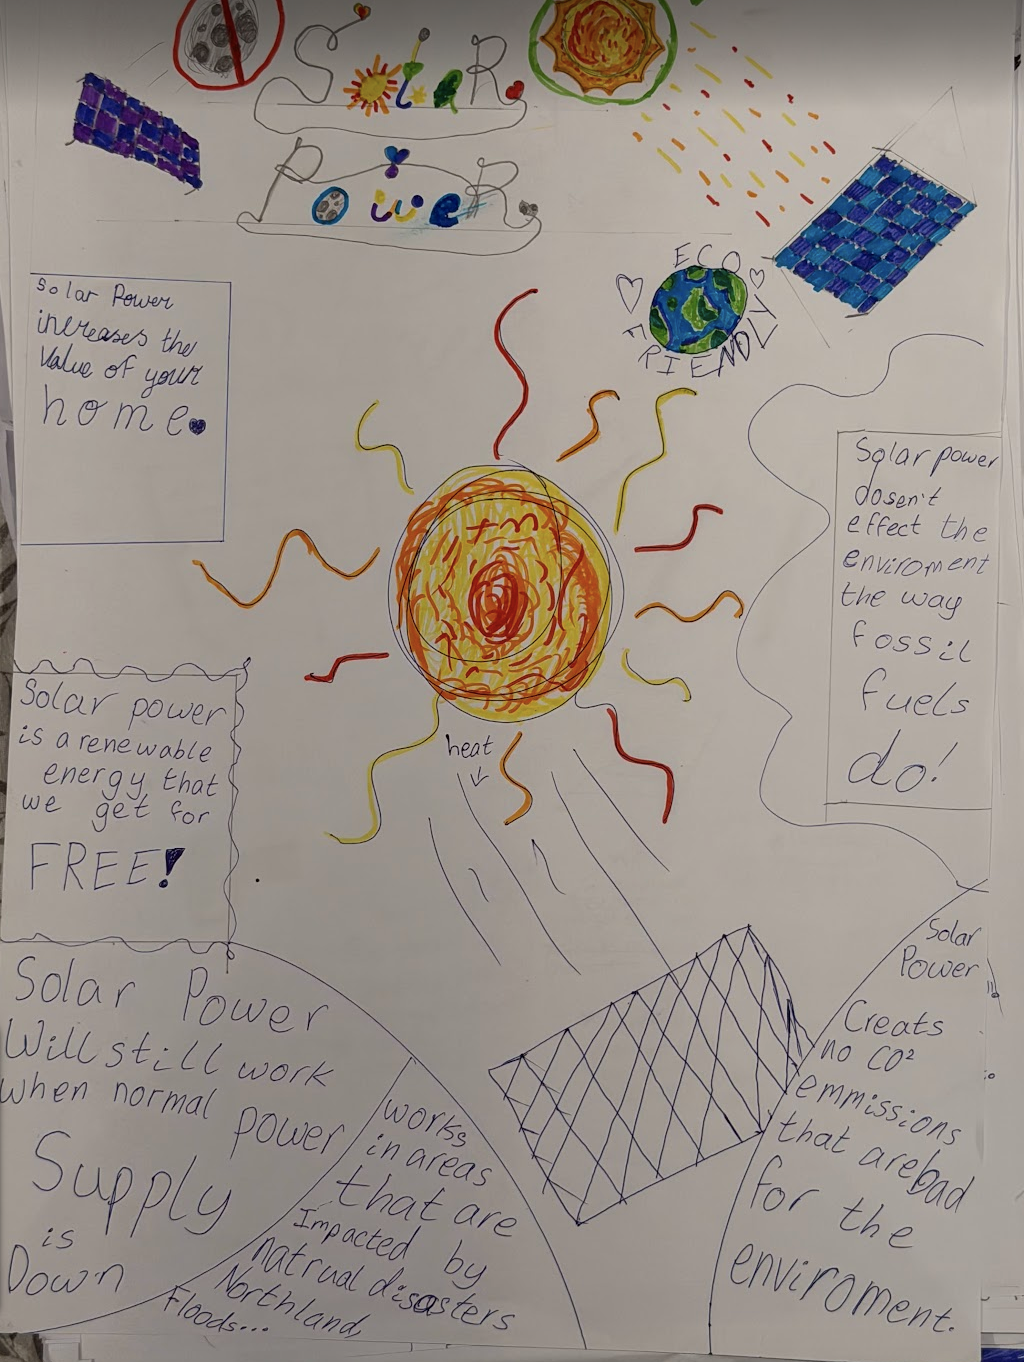 SolaR
PoweR
ECO
FRIENDLY
Solar Power
increases the
value of your
home
Solar power
dosen't
effect the
enviroment
the way
fossil
fuels
do!
Solar power
is a renewable
energy that
we get for
FREE!
heat
Solar Power
Will still work
when normal
power
Supply
is
Down
works
in areas
that are
Impacted by
natrual disasters
Northland
Floods...
Solar
Power
Creats
no CO²
emmissions
that are bad
for the
enviroment.